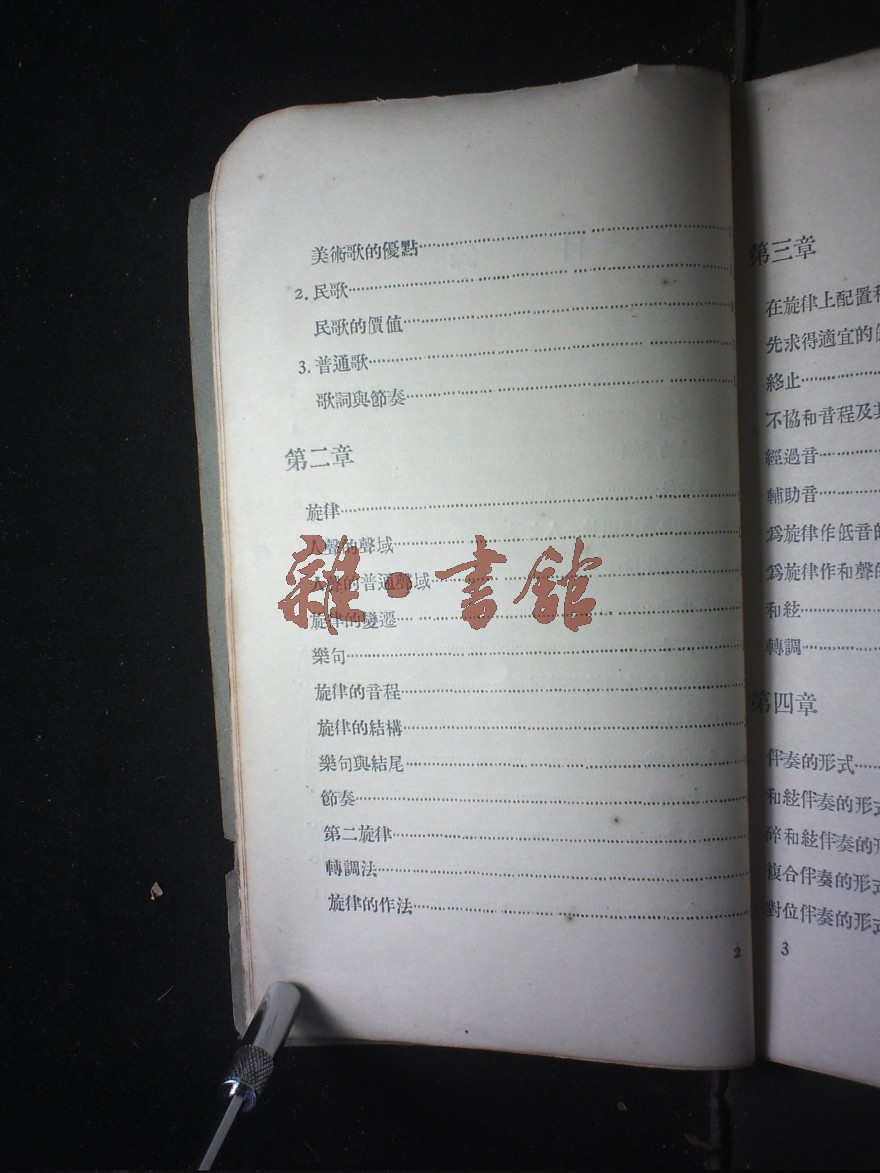 美術歌的優點
2. 民歌
民歌的價值
3. 普通歌
歌詞與節奏
第二章
旋律
人聲的聲域
人聲的普通聲域
旋律的變遷
樂句
旋律的音程
旋律的結構
樂句與結尾
節奏
第二旋律
轉調法
旋律的作法
2
第三章
在旋律上配置和
先求得適宜的
終止
不協和音程及其
經過音
輔助音
爲旋律作低音的
爲旋律作和聲的
和絃
轉調
第四章
伴奏的形式
和絃伴奏的形式
碎和絃伴奏的形
複合伴奏的形式
對位伴奏的形式
3
雜·書館